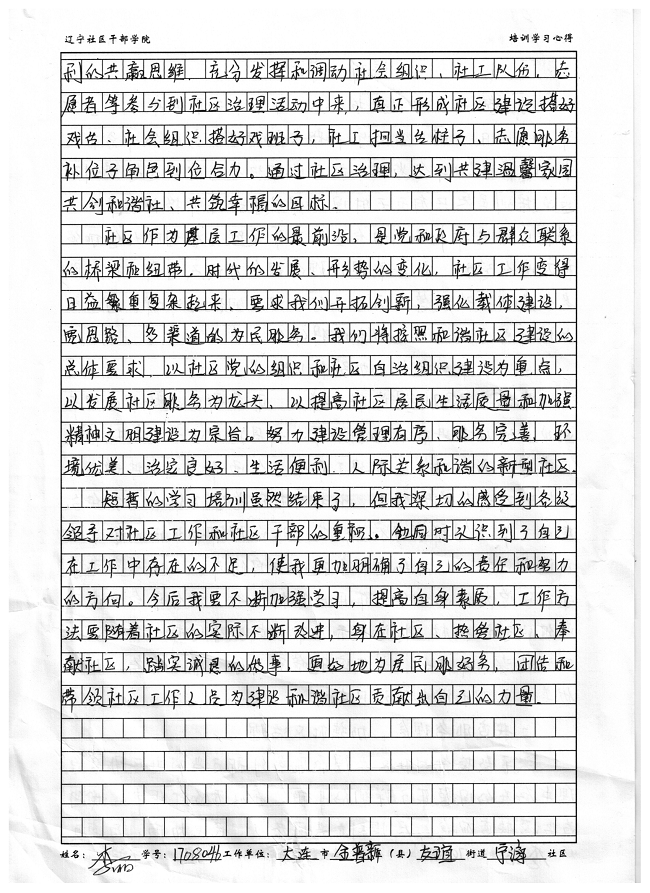 辽宁社区干部学院 培训学习心得
利的共赢思维，充分发挥和调动社会组织、社工队伍、志
愿者等参与到社区治理活动中来，真正形成社区建设搭好
戏台、社会组织搭好戏班子，社工担当台柱子、志愿服务
补位子角色到位合力。通过社区治理，达到共建温馨家园
共创和谐社、共筑幸福的目标。
社区作为基层工作的最前沿，是党和政府与群众联系
的桥梁和纽带，时代的发展、形势的变化，社区工作变得
日益繁重复杂起来，要求我们开拓创新，强化载体建设，
宽思路、多渠道的为民服务。我们将按照和谐社区建设的
总体要求，以社区党的组织和社区自治组织建设为重点，
以发展社区服务为龙头，以提高社区居民生活质量和加强
精神文明建设为宗旨。努力建设管理有序、服务完善、环
境优美、治安良好、生活便利、人际关系和谐的新型社区。
短暂的学习培训虽然结束了，但我深切的感受到各级
领导对社区工作和社区干部的重视。也同时认识到了自己
在工作中存在的不足，使我更加明确了自己的责任和努力
的方向。今后我要不断加强学习，提高自身素质，工作方
法要随着社区的实际不断改进，身在社区、热爱社区、奉
献社区，踏实诚恳的做事，更好地为居民服好务，团结和
带领社区工作人员为建设和谐社区贡献出自己的力量。
姓名： 学号：1708046 工作单位：大连 市 金普新（县）友谊 街道 宁海 社区